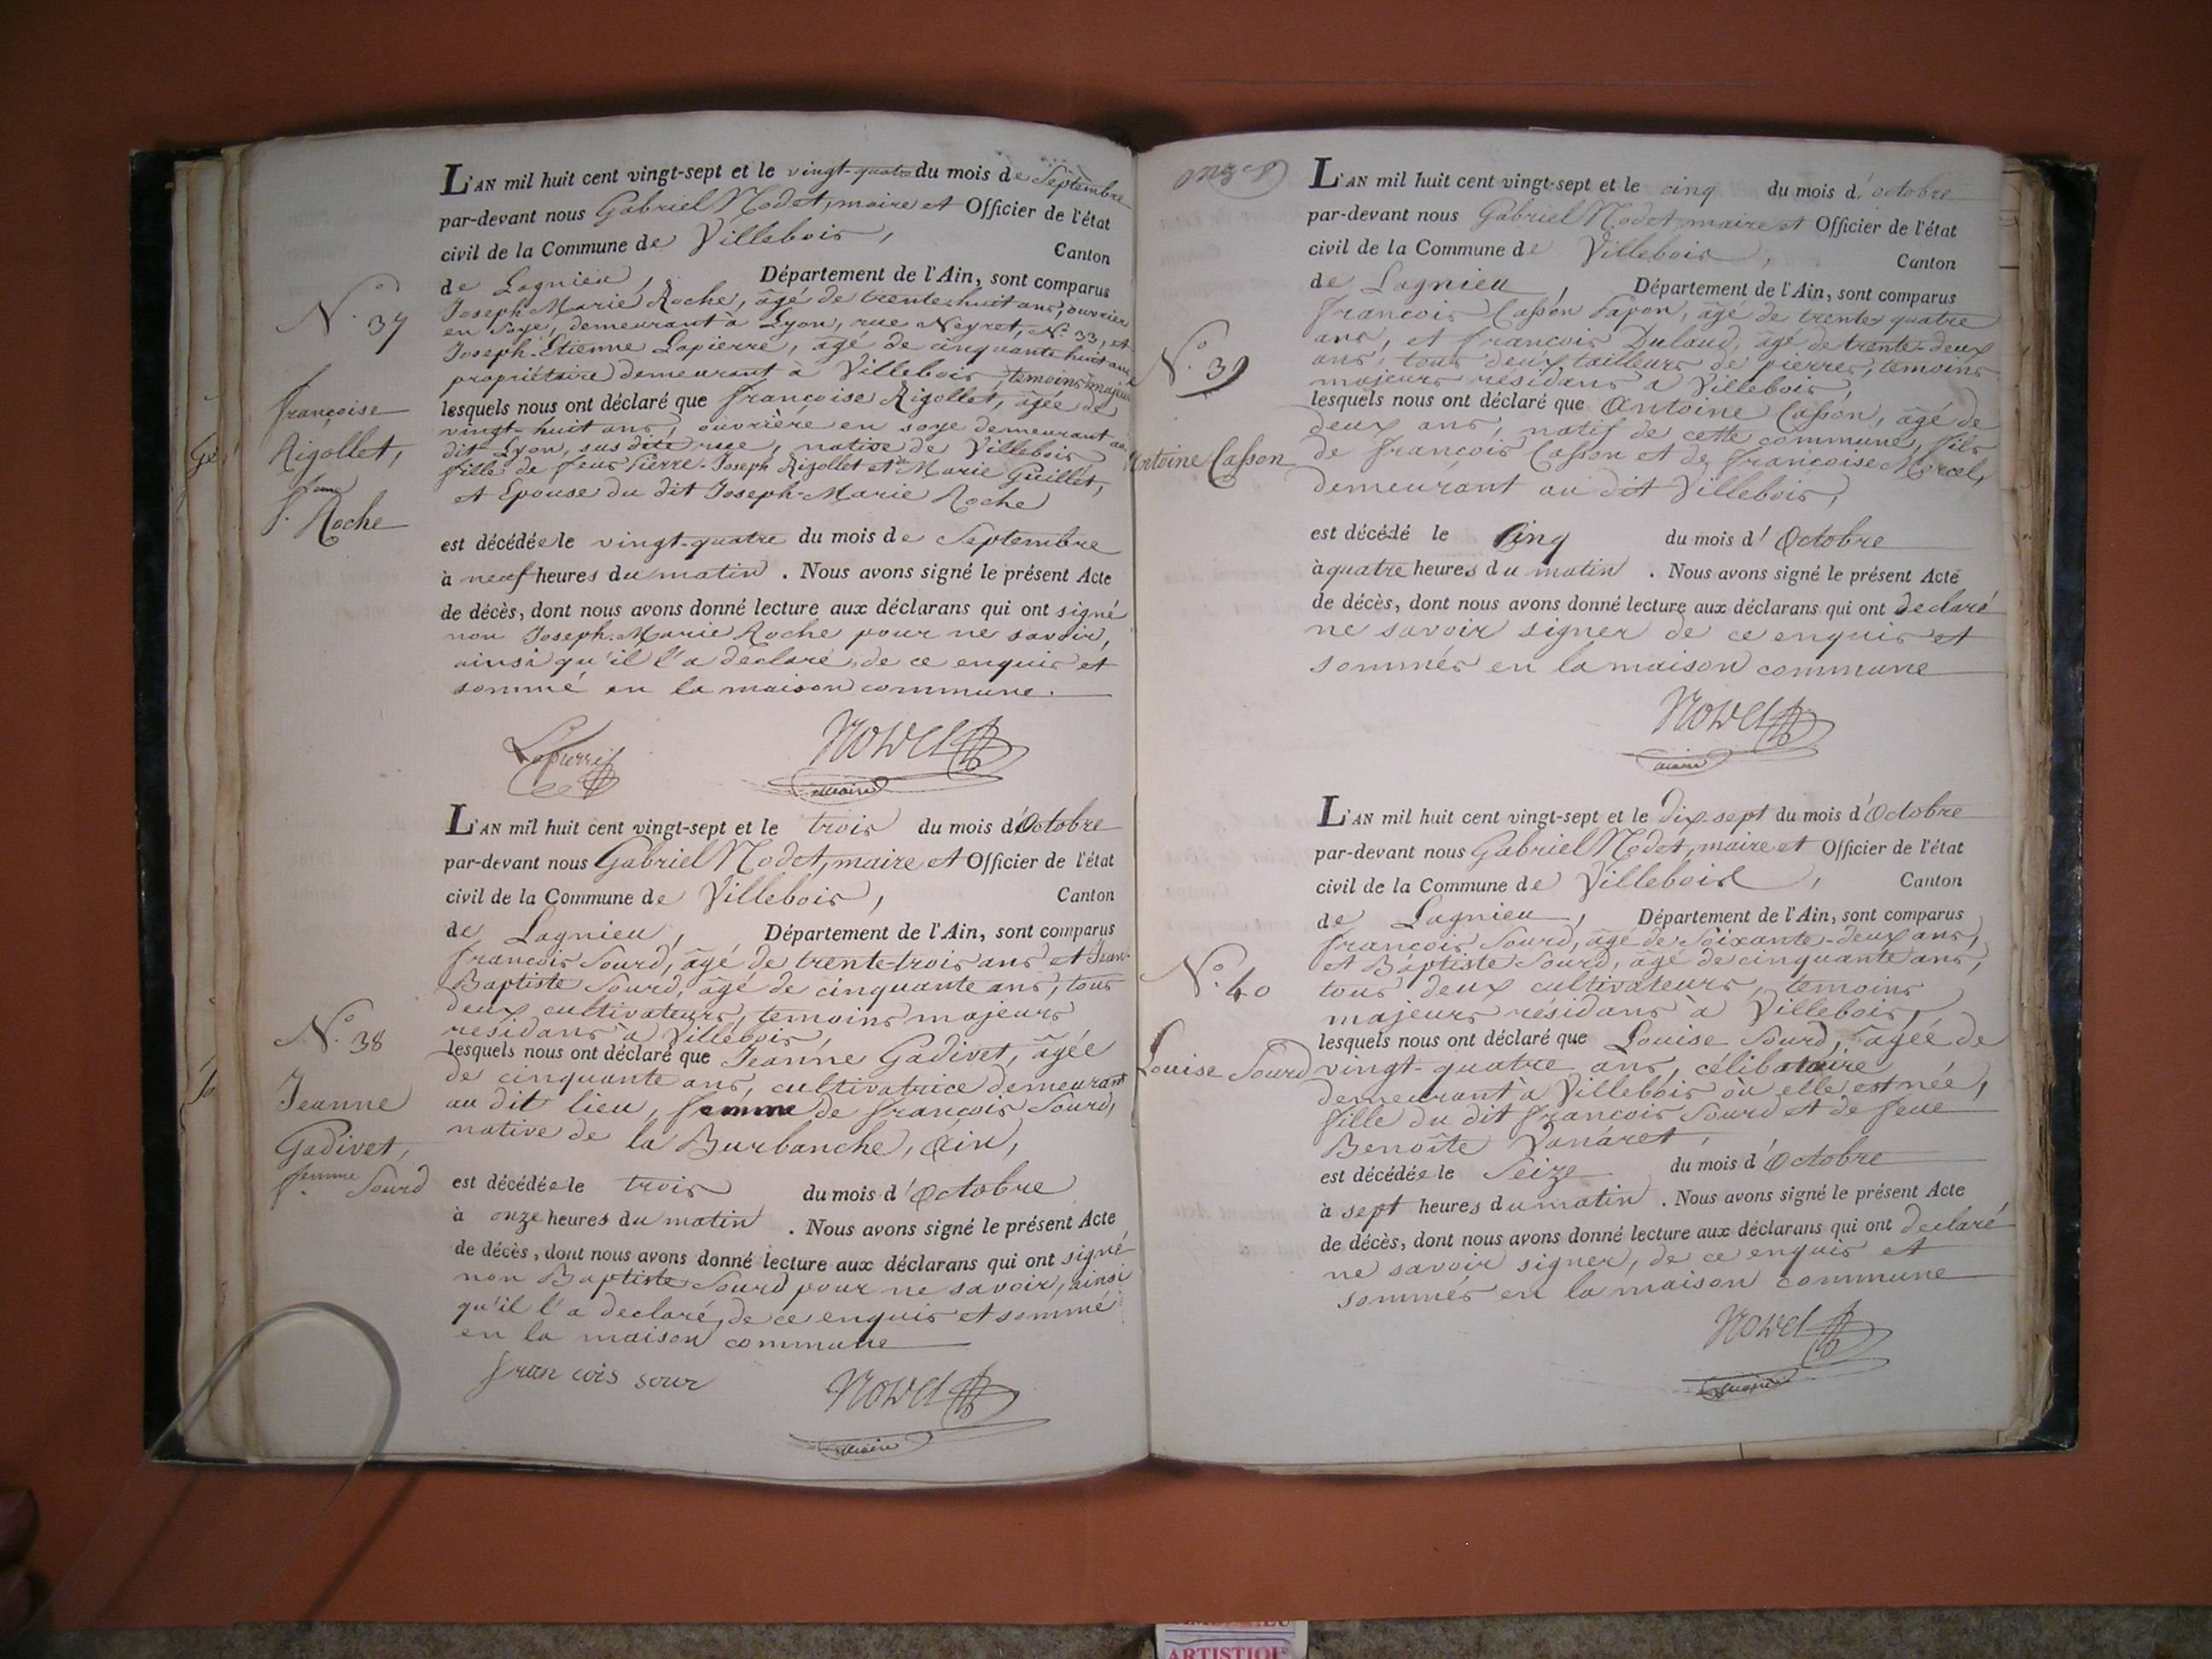 L'AN mil huit cent vingt-sept et le vingt-quatre du mois de Septembre
par-devant nous Gabriel Nodet, maire et Officier de l'état
civil de la Commune de Villebois, Canton
de Lagnieu, Département de l'Ain, sont comparus
Joseph Marie Roche, âgé de trente huit ans, ouvrier
en soye, demeurant à Lyon, rue Neyret, N° 33, et
Joseph-Etienne Lapierre, âgé de cinquante huit ans
propriétaire demeurant à Villebois, temoins majeurs
lesquels nous ont déclaré que françoise Rigollet, âgée de
vingt-huit ans, ouvrière en soye demeurant au
dit Lyon, sus dite rue, native de Villebois
fille de feus Pierre-Joseph Rigollet et de Marie Guillet,
et Epouse du dit Joseph-Marie Roche
est décédée le vingt-quatre du mois de Septembre
à neuf heures du matin. Nous avons signé le présent Acte
de décès, dont nous avons donné lecture aux déclarans qui ont signé
non Joseph-Marie Roche pour ne savoir,
ainsi qu'il l'a declaré, de ce enquis et
sommé en la maison commune.
N° 37
françoise
Rigollet,
fme
Roche
maire
L'AN mil huit cent vingt-sept et le trois du mois d'Octobre
par-devant nous Gabriel Nodet, maire et Officier de l'état
civil de la Commune de Villebois, Canton
de Lagnieu, Département de l'Ain, sont comparus
françois Sourd, âgé de trente-trois ans et Jean-
Baptiste Sourd, âgé de cinquante ans, tous
deux cultivateurs, temoins majeurs
residans à Villebois,
lesquels nous ont déclaré que Jeanne Gadivet, âgée
de cinquante ans, cultivatrice demeurant
au dit lieu, femme de françois Sourd,
native de la Burbanche, Ain,
est décédée le trois du mois d'Octobre
à onze heures du matin. Nous avons signé le présent Acte
de décès, dont nous avons donné lecture aux déclarans qui ont signé
non Baptiste Sourd pour ne savoir, ainsi
qu'il l'a declaré, de ce enquis et sommé
en la maison commune
N° 38
Jeanne
Gadivet,
femme Sourd
fran cois sour
maire
L'AN mil huit cent vingt-sept et le cinq du mois d'octobre
par-devant nous Gabriel Nodet maire et Officier de l'état
civil de la Commune de Villebois, Canton
de Lagnieu, Département de l'Ain, sont comparus
françois Casson Papon, âgé de trente quatre
ans, et françois Dulaud, âgé de trente-deux
ans, tous deux tailleurs de pierres, temoins
majeurs résidans à Villebois,
lesquels nous ont déclaré que Antoine Casson, âgé de
deux ans, natif de cette commune, fils
de françois Casson et de françoise Marcel,
demeurant au dit Villebois,
est décédé le Cinq du mois d'Octobre
à quatre heures du matin. Nous avons signé le présent Acte
de décès, dont nous avons donné lecture aux déclarans qui ont declaré
ne savoir signer de ce enquis et
sommés en la maison commune
N° 39
Antoine Casson
maire
L'AN mil huit cent vingt-sept et le Dix-sept du mois d'Octobre
par-devant nous Gabriel Nodet, maire et Officier de l'état
civil de la Commune de Villebois, Canton
de Lagnieu, Département de l'Ain, sont comparus
françois Sourd, âgé de Soixante-deux ans,
et Baptiste Sourd, âgé de cinquante ans,
tous deux cultivateurs, témoins
majeurs résidans à Villebois,
lesquels nous ont déclaré que Louise Sourd, âgée de
vingt-quatre ans, célibataire
demeurant à Villebois où elle est née,
fille du dit françois Sourd et de feue
Benoîte Vanaret,
est décédée le Seize du mois d'Octobre
à sept heures du matin. Nous avons signé le présent Acte
de décès, dont nous avons donné lecture aux déclarans qui ont declaré
ne savoir signer, de ce enquis et
sommés en la maison commune
N° 40
Louise Sourd
maire
ARTISTIQUE